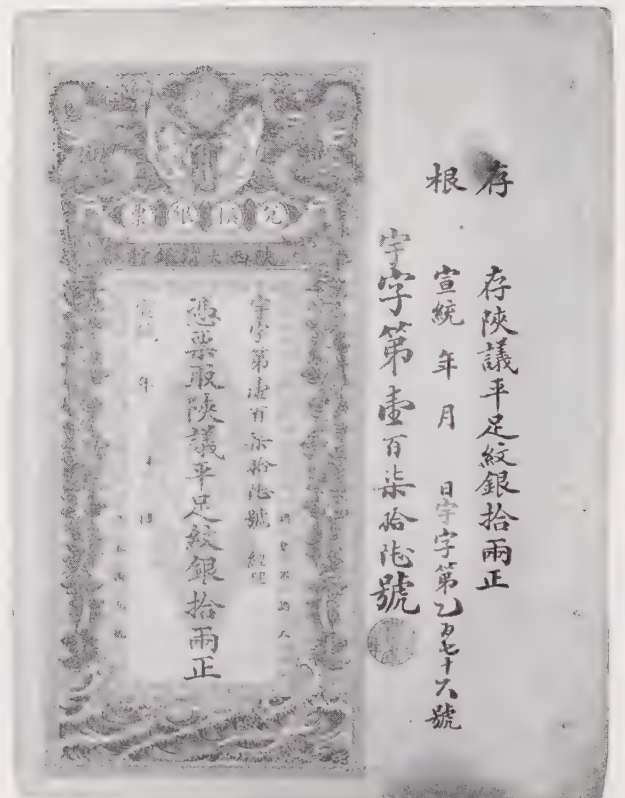 存根
存陝議平足紋銀拾兩正
宣統 年 月 日宇字第乙百七十六號
宇字第壹百柒拾陸號
兌換銀票
陝西大清銀行
宇字第壹百柒拾陸號 經理
憑票取陝議平足紋銀拾兩正
宣統 年 月